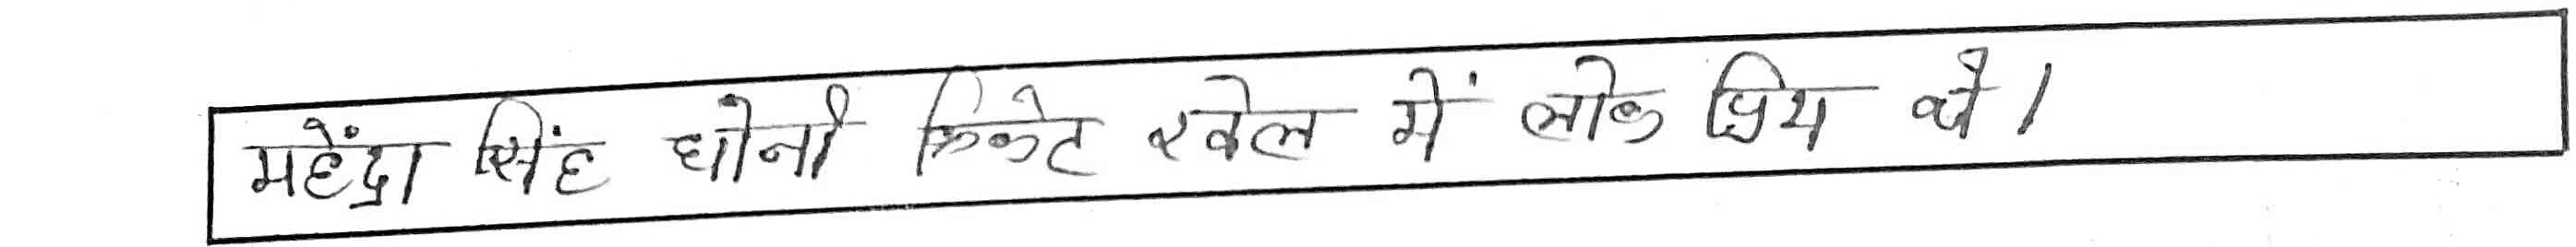 महेंद्रा सिंह धोनी क्रिकेट खेल में लोक प्रिय थे।